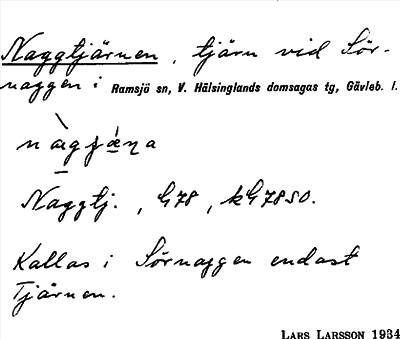 Naggtjärnen, tjärn vid Sör-
naggen i Ramsjö sn, V. Hälsinglands domsagas tg, Gävleb. l.
Naggtj., G78, kG7850.
Kallas i Sörnaggen endast
Tjärnen.
LARS LARSSON 1934